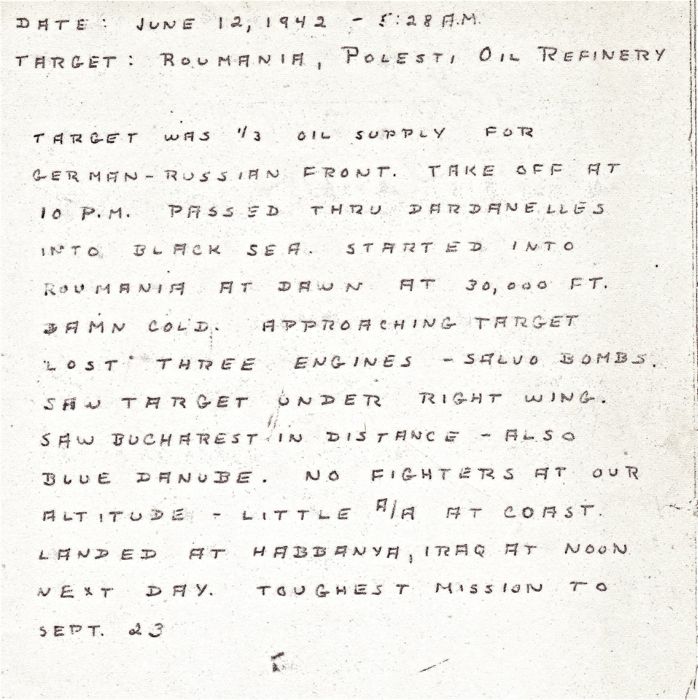 DATE: JUNE 12, 1942 - 5:28 A.M.
TARGET: ROUMANIA, POLESTI OIL REFINERY
TARGET WAS 1/3 OIL SUPPLY FOR
GERMAN-RUSSIAN FRONT. TAKE OFF AT
10 P.M. PASSED THRU DARDANELLES
INTO BLACK SEA. STARTED INTO
ROUMANIA AT DAWN AT 30,000 FT.
DAMN COLD. APPROACHING TARGET
LOST THREE ENGINES - SALVO BOMBS.
SAW TARGET UNDER RIGHT WING.
SAW BUCHAREST IN DISTANCE - ALSO
BLUE DANUBE. NO FIGHTERS AT OUR
ALTITUDE - LITTLE A/A AT COAST.
LANDED AT HABBANYA, IRAQ AT NOON
NEXT DAY. TOUGHEST MISSION TO
SEPT. 23